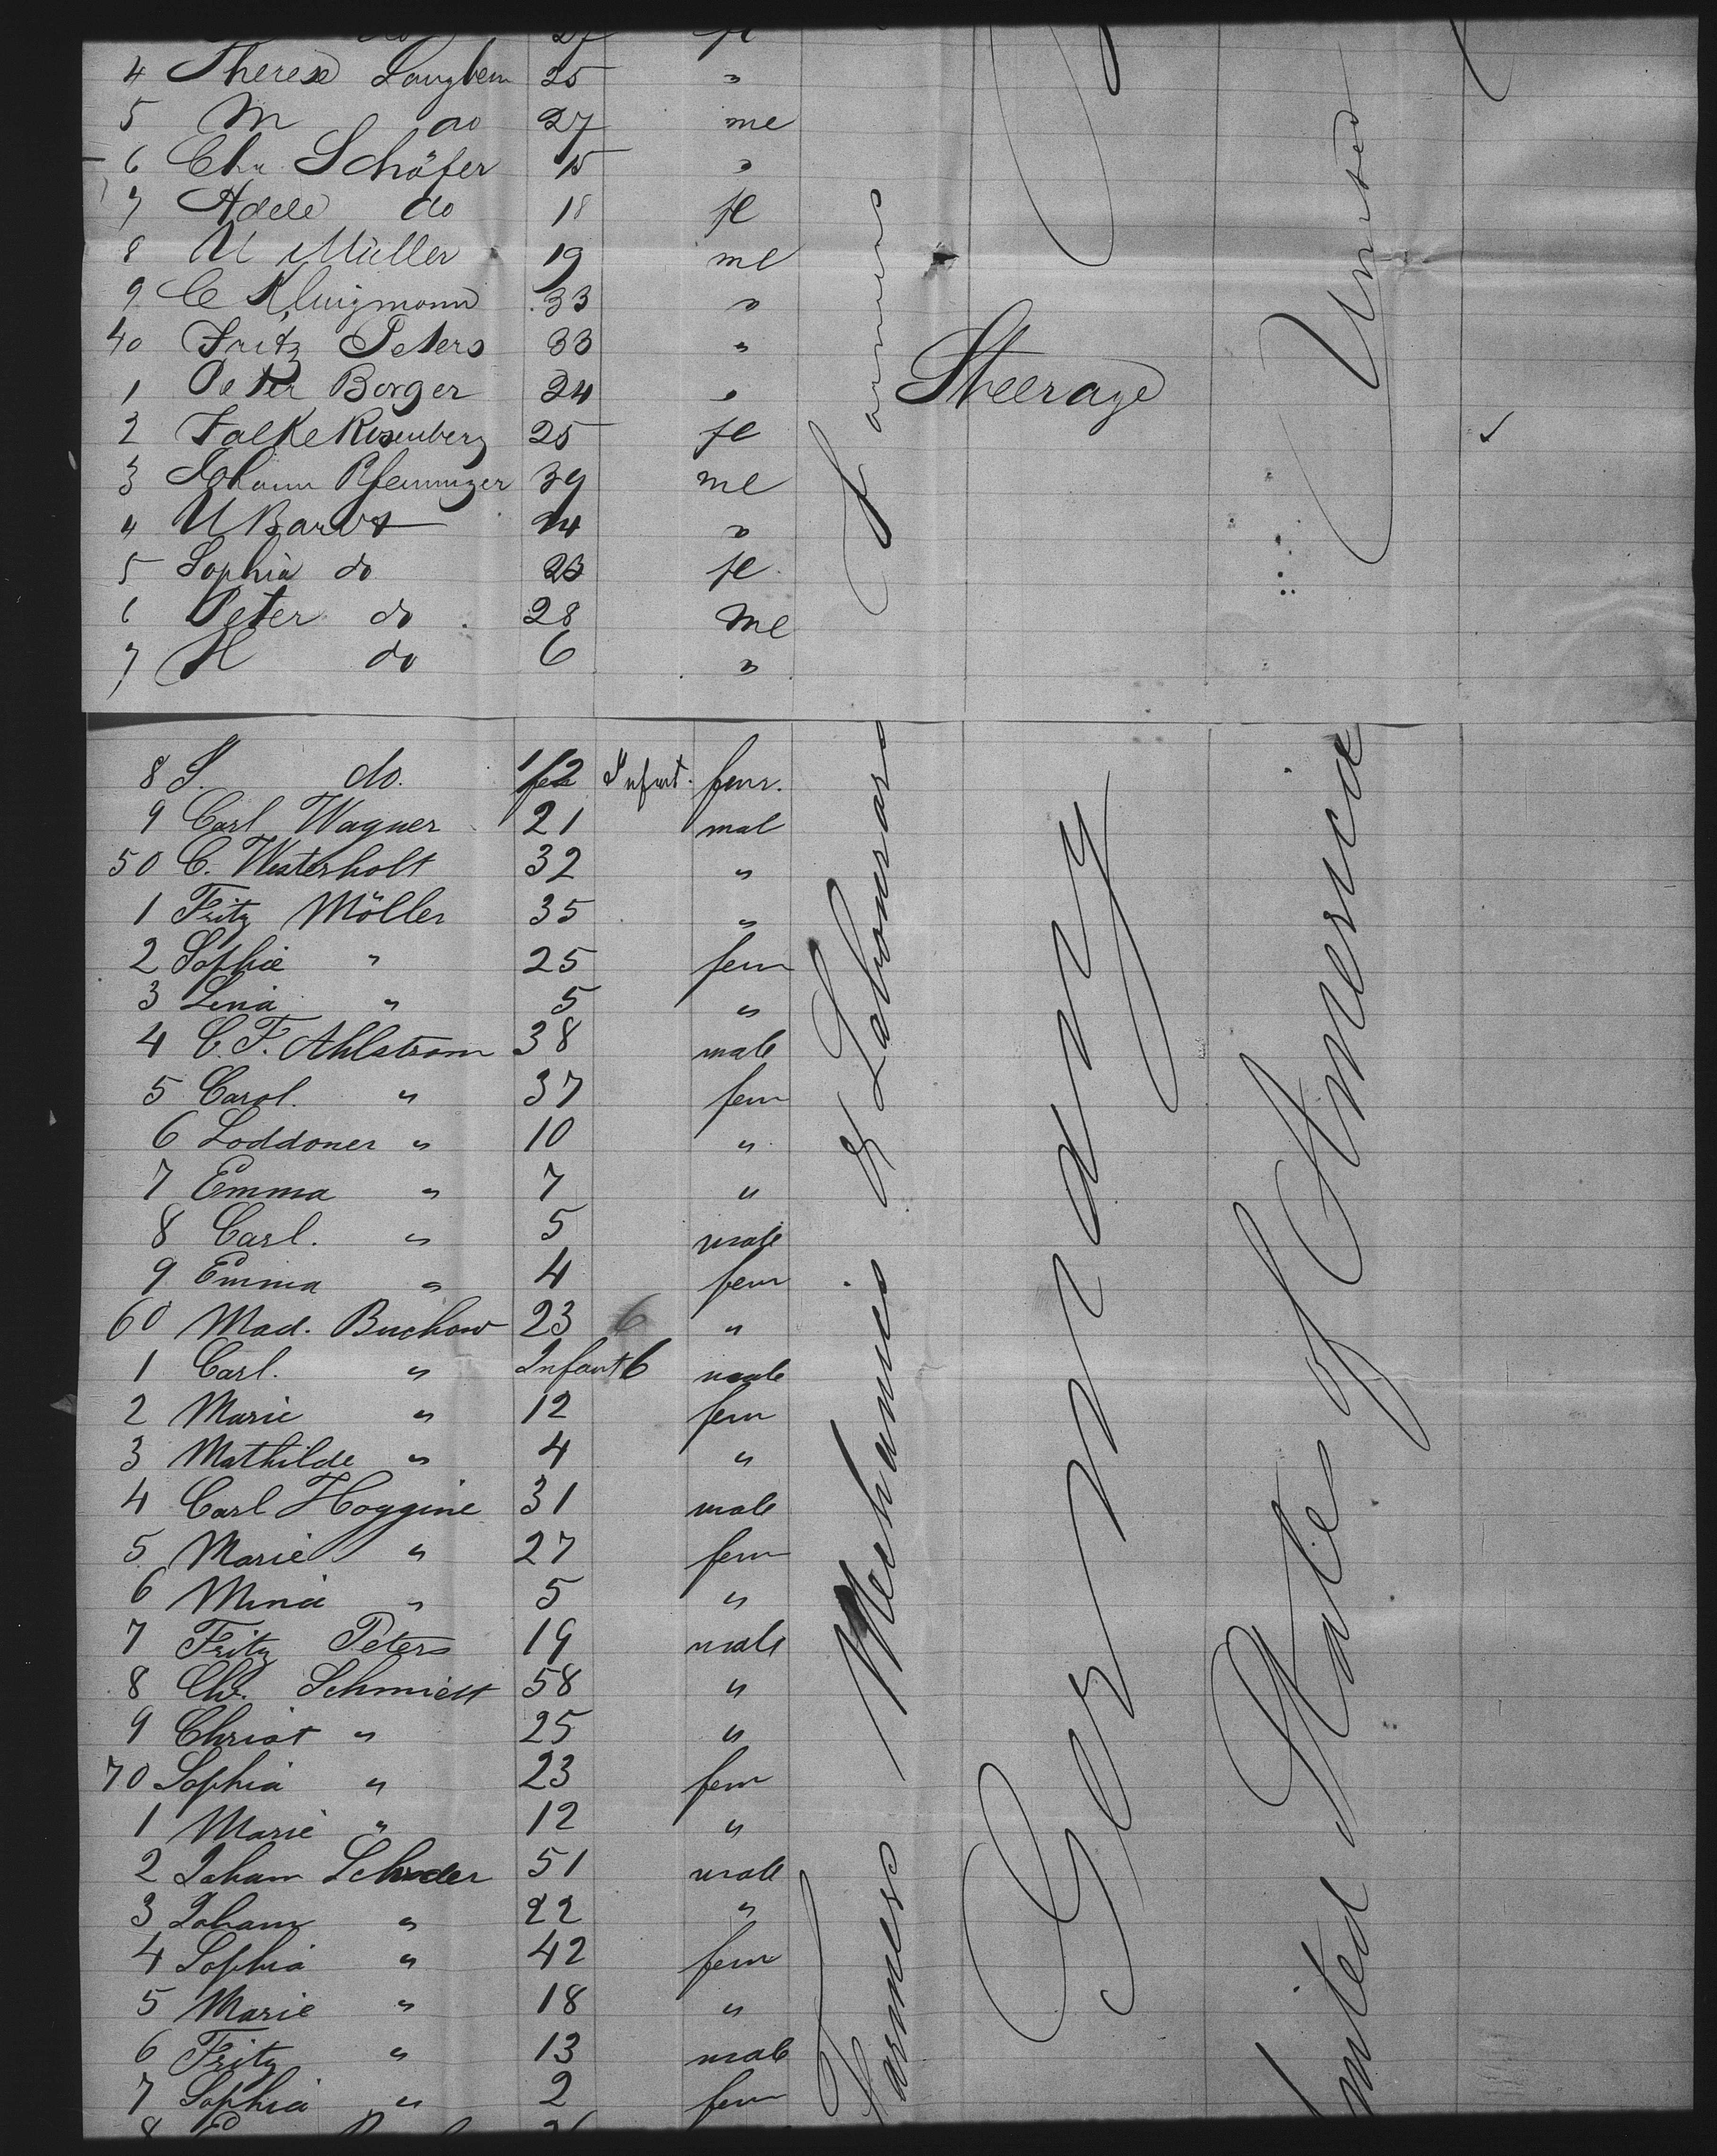 4 Therese Langbein 25 "
5 M do 27 me
6 Chr Schäfer 15 "
7 Adele do 18 fe
8 U Müller 19 me
9 C 33 "
40 Fritz Peters 33 "
1 Peter Borger 24 "
2 Falke Rosenberg 25 fe
3 Johann Pfenninger 39 me
4 U "
5 Sophia do fe
6 Peter do 28 me
7 H do 6 "
Farmers
Steerage
United
8 S. do. Infant. fem.
9 Carl Wagner 21 mal
50 C. Westerholt 32 "
1 Fritz Möller 35 "
2 Sophie " 25 fem
3 Lina " 5 "
4 C. F. Ahlstrom 38 male
5 Carol. " 37 fem
6 Loddoner " 10 "
7 Emma " 7 "
8 Carl. " 5 male
9 Emma " 4 fem
60 Mad. Buchow 23 6 "
1 Carl. " Infant 6 male
2 Marie " 12 fem
3 Mathilde " 4 "
4 Carl Hoggine 31 male
5 Marie " 27 fem
6 Mina " 5 "
7 Fritz Peters 19 male
8 Chr. Schmidt 58 "
9 Christ " 25 "
70 Sophia " 23 fem
1 Marie " 12 "
2 Joham Schroder 51 male
3 Joham " 22 "
4 Sophia " 42 fem
5 Marie " 18 "
6 Fritz " 13 male
7 Sophia " 2 fem
Farmers Mechannics & Labourars
Germany
United State of America